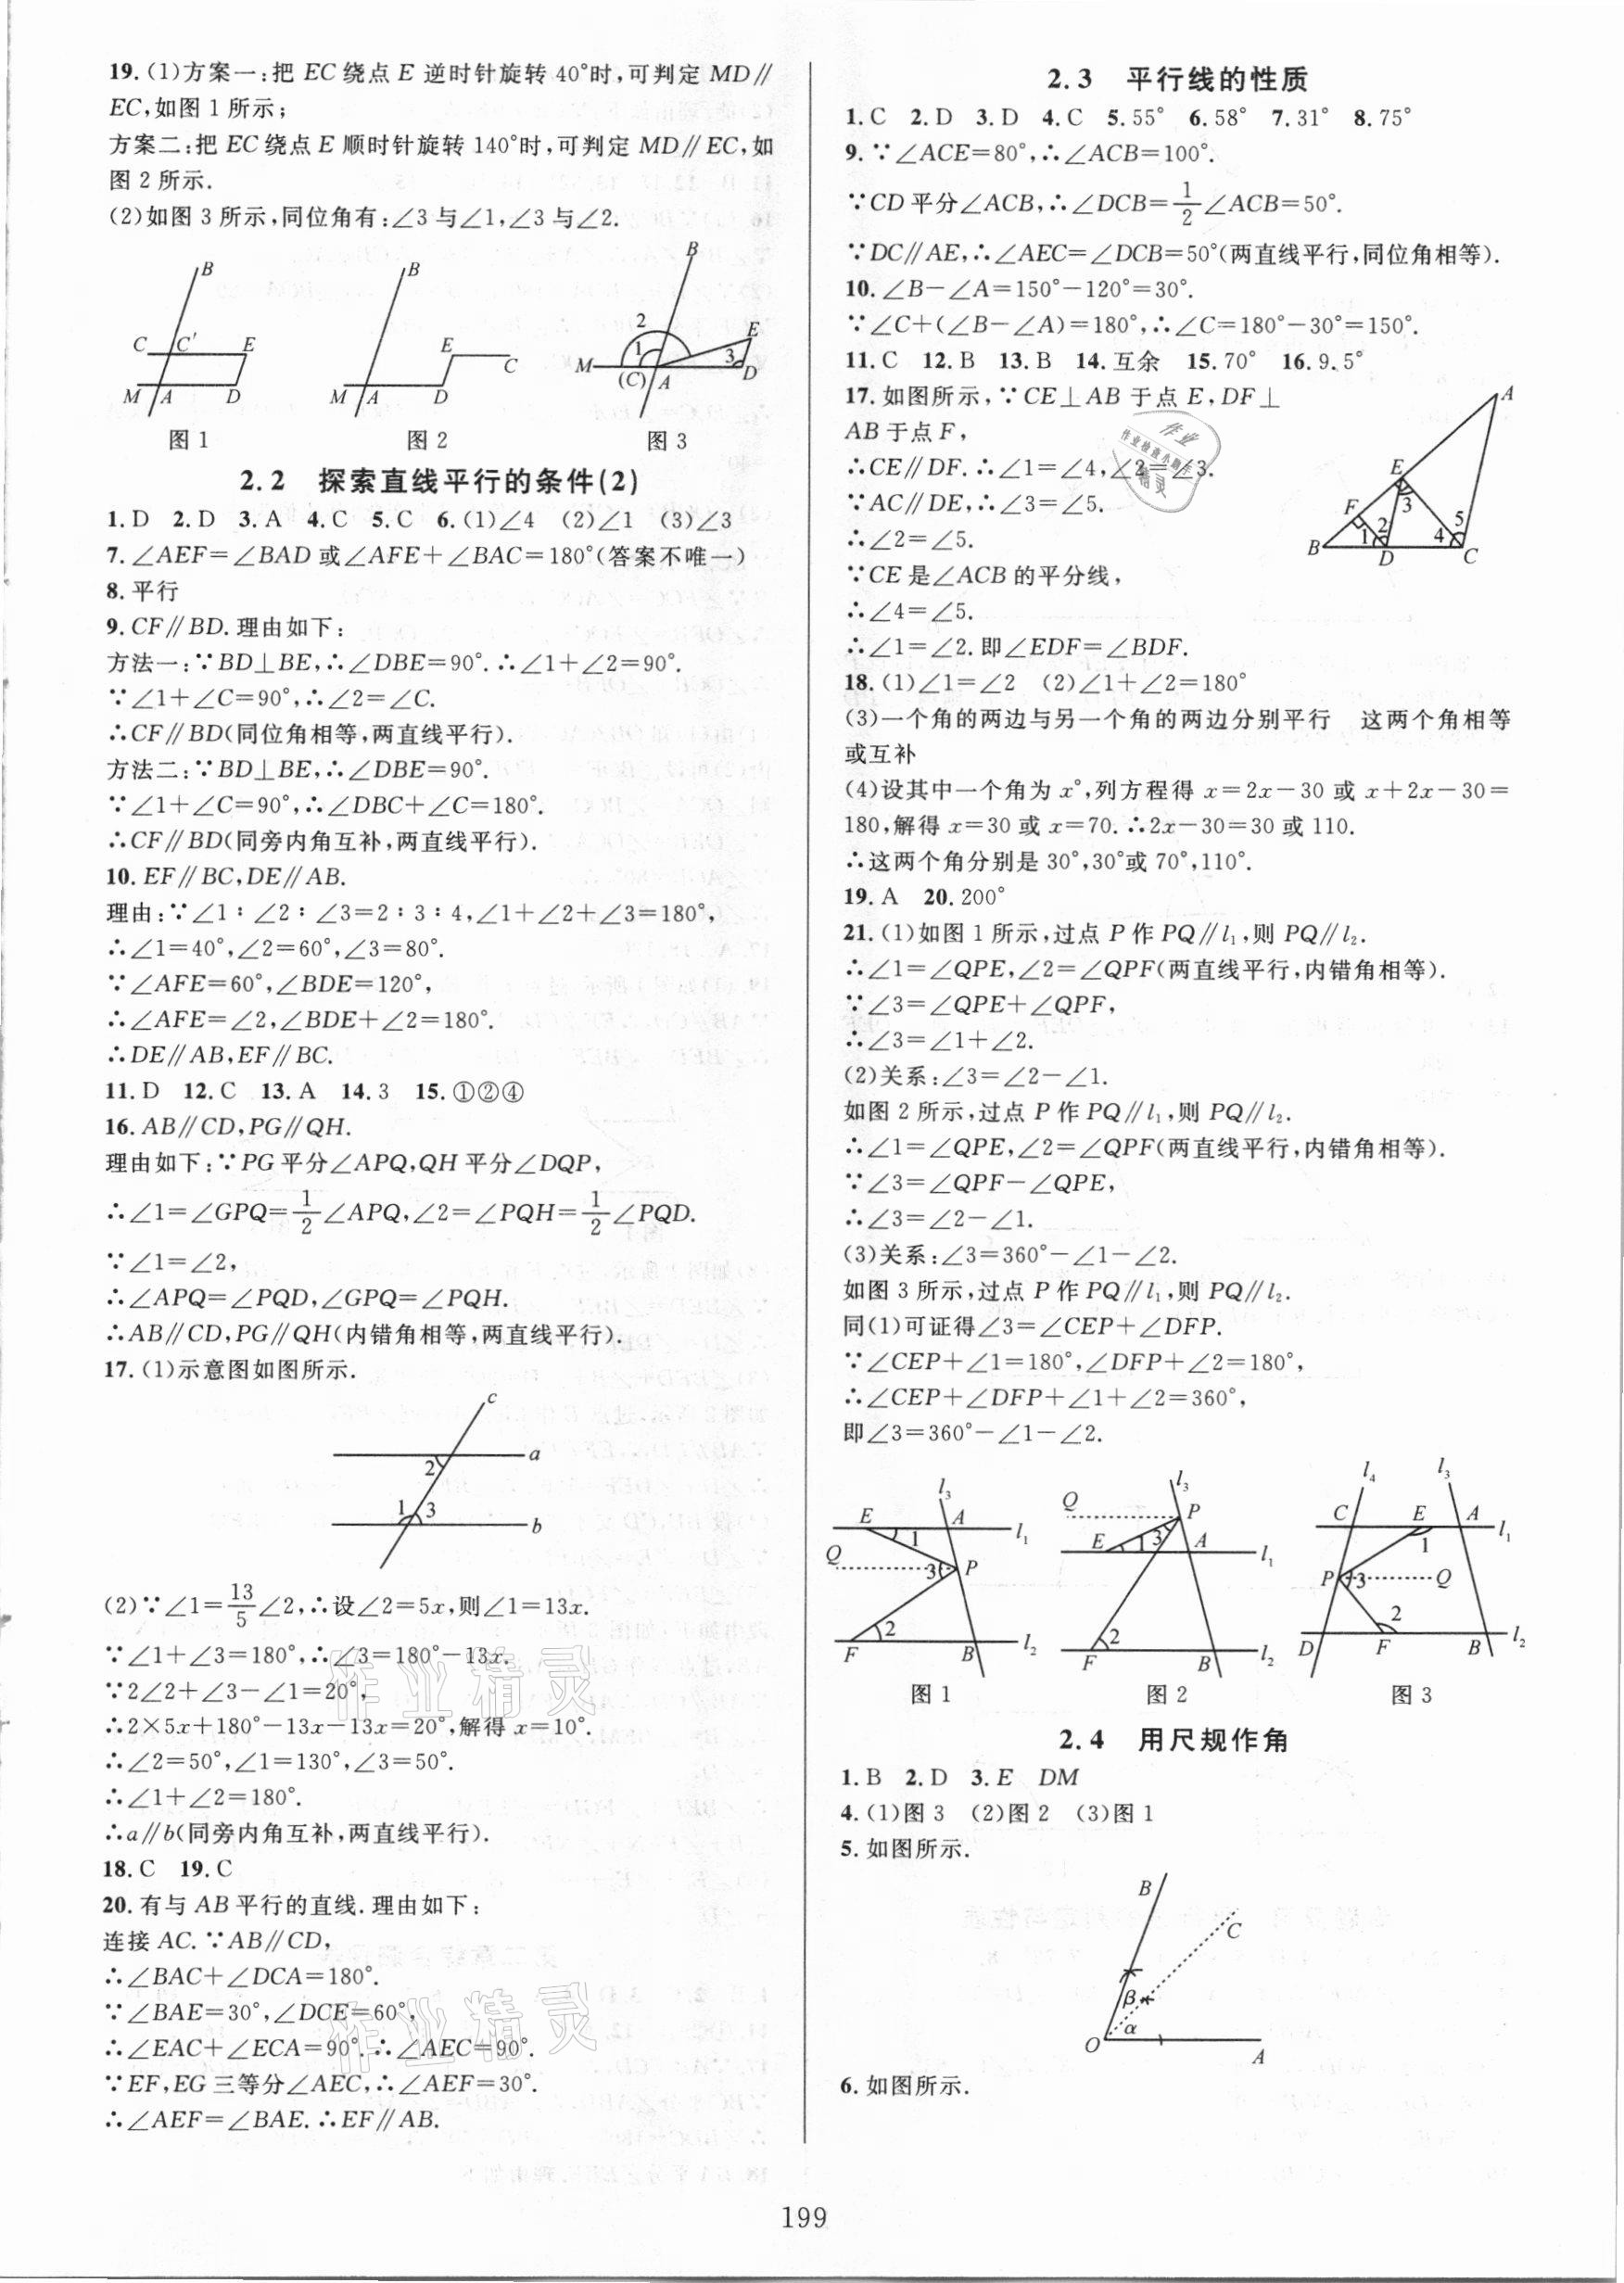 19.(1)方案一:把 EC 绕点 E 逆时针旋转 40°时,可判定 MD∥
EC,如图 1 所示;
方案二:把 EC 绕点 E 顺时针旋转 140°时,可判定 MD∥EC,如
图 2 所示.
(2)如图 3 所示,同位角有:∠3 与∠1,∠3 与∠2.
B
C C′ E
M A D
图 1
B
E
C
M A D
图 2
B
2
E
1
3
M
(C) A D
图 3
2.2 探索直线平行的条件(2)
1.D 2.D 3.A 4.C 5.C 6.(1)∠4 (2)∠1 (3)∠3
7.∠AEF=∠BAD 或∠AFE+∠BAC=180°(答案不唯一)
8.平行
9.CF∥BD.理由如下:
方法一:∵BD⊥BE,∴∠DBE=90°.∴∠1+∠2=90°.
∵∠1+∠C=90°,∴∠2=∠C.
∴CF∥BD(同位角相等,两直线平行).
方法二:∵BD⊥BE,∴∠DBE=90°.
∵∠1+∠C=90°,∴∠DBC+∠C=180°.
∴CF∥BD(同旁内角互补,两直线平行).
10.EF∥BC,DE∥AB.
理由:∵∠1∶∠2∶∠3=2∶3∶4,∠1+∠2+∠3=180°,
∴∠1=40°,∠2=60°,∠3=80°.
∵∠AFE=60°,∠BDE=120°,
∴∠AFE=∠2,∠BDE+∠2=180°.
∴DE∥AB,EF∥BC.
11.D 12.C 13.A 14.3 15.①②④
16.AB∥CD,PG∥QH.
理由如下:∵PG 平分∠APQ,QH 平分∠DQP,
∴∠1=∠GPQ=1/2∠APQ,∠2=∠PQH=1/2∠PQD.
∵∠1=∠2,
∴∠APQ=∠PQD,∠GPQ=∠PQH.
∴AB∥CD,PG∥QH(内错角相等,两直线平行).
17.(1)示意图如图所示.
c
a
2
1 3
b
(2)∵∠1=13/5∠2,∴设∠2=5x,则∠1=13x.
∵∠1+∠3=180°,∴∠3=180°-13x.
∵2∠2+∠3-∠1=20°,
∴2×5x+180°-13x-13x=20°,解得 x=10°.
∴∠2=50°,∠1=130°,∠3=50°.
∴∠1+∠2=180°.
∴a∥b(同旁内角互补,两直线平行).
18.C 19.C
20.有与 AB 平行的直线.理由如下:
连接 AC.∵AB∥CD,
∴∠BAC+∠DCA=180°.
∵∠BAE=30°,∠DCE=60°,
∴∠EAC+∠ECA=90°.∴∠AEC=90°.
∵EF,EG 三等分∠AEC,∴∠AEF=30°.
∴∠AEF=∠BAE.∴EF∥AB.
2.3 平行线的性质
1.C 2.D 3.D 4.C 5.55° 6.58° 7.31° 8.75°
9.∵∠ACE=80°,∴∠ACB=100°.
∵CD 平分∠ACB,∴∠DCB=1/2∠ACB=50°.
∵DC∥AE,∴∠AEC=∠DCB=50°(两直线平行,同位角相等).
10.∠B-∠A=150°-120°=30°.
∵∠C+(∠B-∠A)=180°,∴∠C=180°-30°=150°.
11.C 12.B 13.B 14.互余 15.70° 16.9.5°
17.如图所示,∵CE⊥AB 于点 E,DF⊥
AB 于点 F,
∴CE∥DF.∴∠1=∠4,∠2=∠3.
∵AC∥DE,∴∠3=∠5.
∴∠2=∠5.
∵CE 是∠ACB 的平分线,
∴∠4=∠5.
∴∠1=∠2.即∠EDF=∠BDF.
A
E
3
F
2 5
1 4
B D C
18.(1)∠1=∠2 (2)∠1+∠2=180°
(3)一个角的两边与另一个角的两边分别平行 这两个角相等
或互补
(4)设其中一个角为 x°,列方程得 x=2x-30 或 x+2x-30=
180,解得 x=30 或 x=70.∴2x-30=30 或 110.
∴这两个角分别是 30°,30°或 70°,110°.
19.A 20.200°
21.(1)如图 1 所示,过点 P 作 PQ∥l₁,则 PQ∥l₂.
∴∠1=∠QPE,∠2=∠QPF(两直线平行,内错角相等).
∵∠3=∠QPE+∠QPF,
∴∠3=∠1+∠2.
(2)关系:∠3=∠2-∠1.
如图 2 所示,过点 P 作 PQ∥l₁,则 PQ∥l₂.
∴∠1=∠QPE,∠2=∠QPF(两直线平行,内错角相等).
∵∠3=∠QPF-∠QPE,
∴∠3=∠2-∠1.
(3)关系:∠3=360°-∠1-∠2.
如图 3 所示,过点 P 作 PQ∥l₁,则 PQ∥l₂.
同(1)可证得∠3=∠CEP+∠DFP.
∵∠CEP+∠1=180°,∠DFP+∠2=180°,
∴∠CEP+∠DFP+∠1+∠2=360°,
即∠3=360°-∠1-∠2.
l₃
E A
1 l₁
Q
3 P
2
F B l₂
图 1
l₃
Q
P
E 1 3 A
l₁
2
F B l₂
图 2
l₄ l₃
C E A
1 l₁
P 3 Q
2
D F B l₂
图 3
2.4 用尺规作角
1.B 2.D 3.E DM
4.(1)图 3 (2)图 2 (3)图 1
5.如图所示.
B
C
β
α
O A
6.如图所示.
199
作业
作业检查小助手
精灵
作业精灵
作业精灵